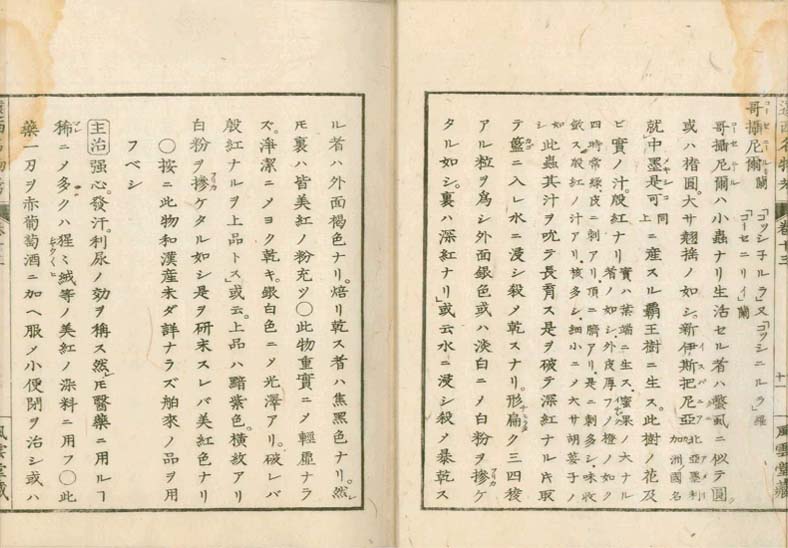 哥攝尼爾蘭「コッシ子ルラ」又「コッシニルラ」羅
「コーセニリイ」蘭
哥攝尼爾ハ小蟲ナリ生活セル者ハ螫虱ニ似テ圓
或ハ楕圓。大サ翹揺ノ如シ。新伊斯把尼亞北亞墨利加洲國名
就中墨是可同上ニ産スル霸王樹ニ生ス。此樹ノ花及
ビ實ノ汁。殷紅ナリ實ハ葉端ニ生ス。蜜果ノ大ナル者ノ如シ外皮厚フノ橙ノ如ク
四時常緑皮ニ刺アリ。頂ニ臍アリ。是ニ刺多シ。味收
歛ス殷紅ノ汁アリ。核多シ。細小ニノ大サ胡荽子ノ如シ
此蟲其汁ヲ吮テ長育ス是ヲ破テ深紅ナル氏取
テ籃ニ入レ水ニ浸シ殺メ乾スナリ。形扁ク三四稜
アル粒ヲ爲シ外面銀色或ハ淡白ニメ白粉ヲ摻ケ
タル如シ。裏ハ深紅ナリ」或云水ニ浸シ殺メ暴乾ス
ル者ハ外面褐色ナリ。焙リ乾ス者ハ焦黑色ナリ。然レ
モ裏ハ皆美紅ノ粉充ツ〇此物重實ニメ輕虚ナラ
ズ。淨潔ニメヨク乾キ。銀白色ニメ光澤アリ。破レバ
殷紅ナルヲ上品トス」或云。上品ハ黯紫色。横紋アリ
白粉ヲ摻ケタル如シ是ヲ研末スレバ美紅色ナリ
〇按ニ此物和漢産未ダ詳ナラズ舶來ノ品ヲ用
フベシ
主治强心。發汗。利尿ノ効ヲ稱ス然モ醫藥ニ用ルヿ
稀ニメ多クハ猩々絨等ノ美紅ノ染料ニ用フ〇此
藥一刃ヲ赤葡萄酒ニ加ヘ服メ小便閉ヲ治シ或ハ
卷十三
十一
風雲堂藏
風雲堂藏